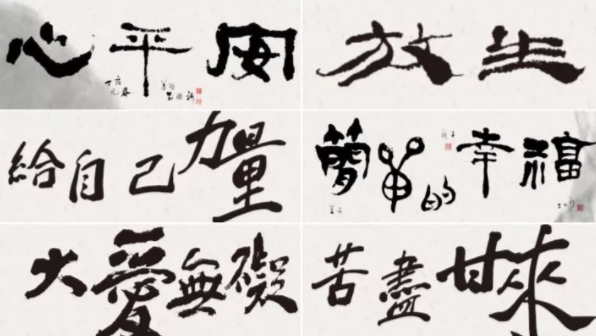 心平安
放生
給自己力量
簡單的幸福
大愛無礙
苦盡甘來